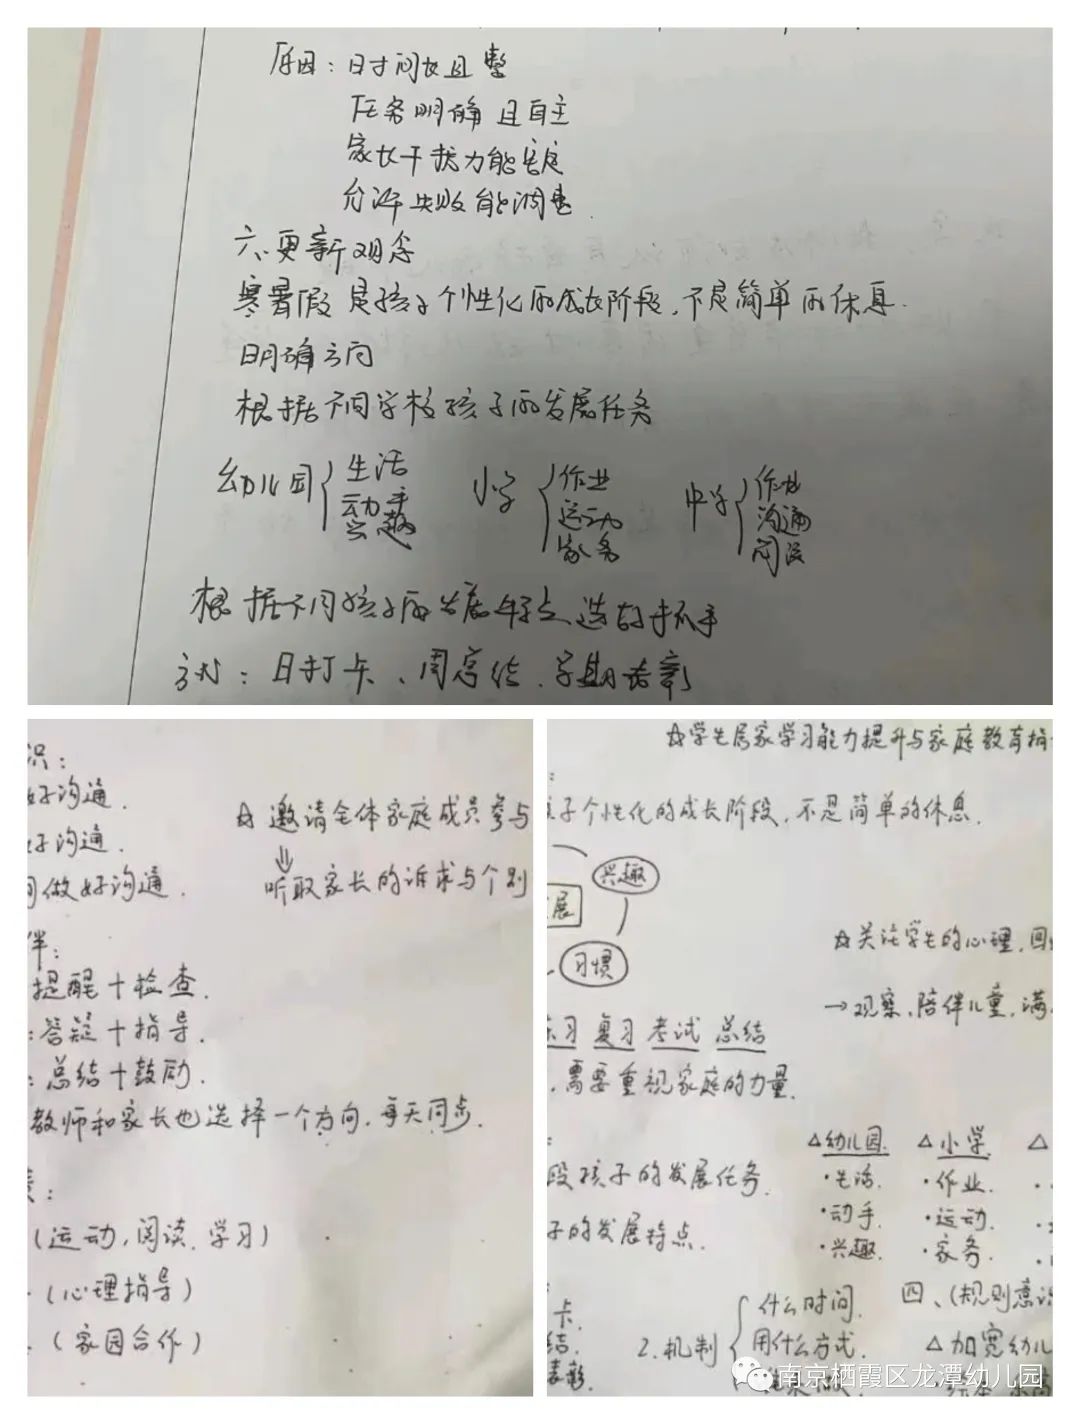 原因：时间长且整
任务明确且自主
家长干扰力能稳定
允许失败能调整
六、更新观念
寒暑假是孩子个性化的成长阶段，不是简单的休息.
明确方向
根据不同学校孩子的发展任务
幼儿园 生活 动手 兴趣
小学 作业 运动 家务
中学 作业 沟通 阅读
根据不同孩子的发展特点选的抓手
方式：日打卡、周总结、学期表彰
识：
好沟通.
好沟通.
做好沟通.
伴：
提醒+检查.
：答疑+指导.
：总结+鼓励.
教师和家长也选择一个方向，每天同步.
（运动，阅读、学习）
（心理指导）
（家园合作）
☆邀请全体家庭成员参与
⇓
听取家长的诉求与个别
☆学生居家学习能力提升与家庭教育指
孩子个性化的成长阶段，不是简单的休息.
兴趣
展
习惯
☆关注学生的心理，
→观察、陪伴儿童，满
习 复习 考试 总结
，需要重视家庭的力量.
段孩子的发展任务.
子的发展特点.
△幼儿园.
·生活.
·动手.
·兴趣.
△小学.
·作业.
·运动.
·家务.
△
卡.
结.
表彰.
2.机制
什么时间.
用什么方式.
四、（规则意识
△加宽幼儿
南京栖霞区龙潭幼儿园